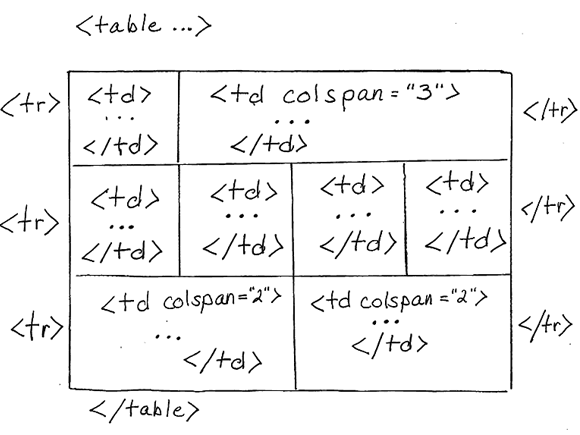 <table ...>
<tr> <td> <td colspan="3"> </tr>
... ...
</td> </td>
<tr> <td> <td> <td> <td> </tr>
... ... ... ...
</td> </td> </td> </td>
<tr> <td colspan="2"> <td colspan="2"> </tr>
... ...
</td> </td>
</table>